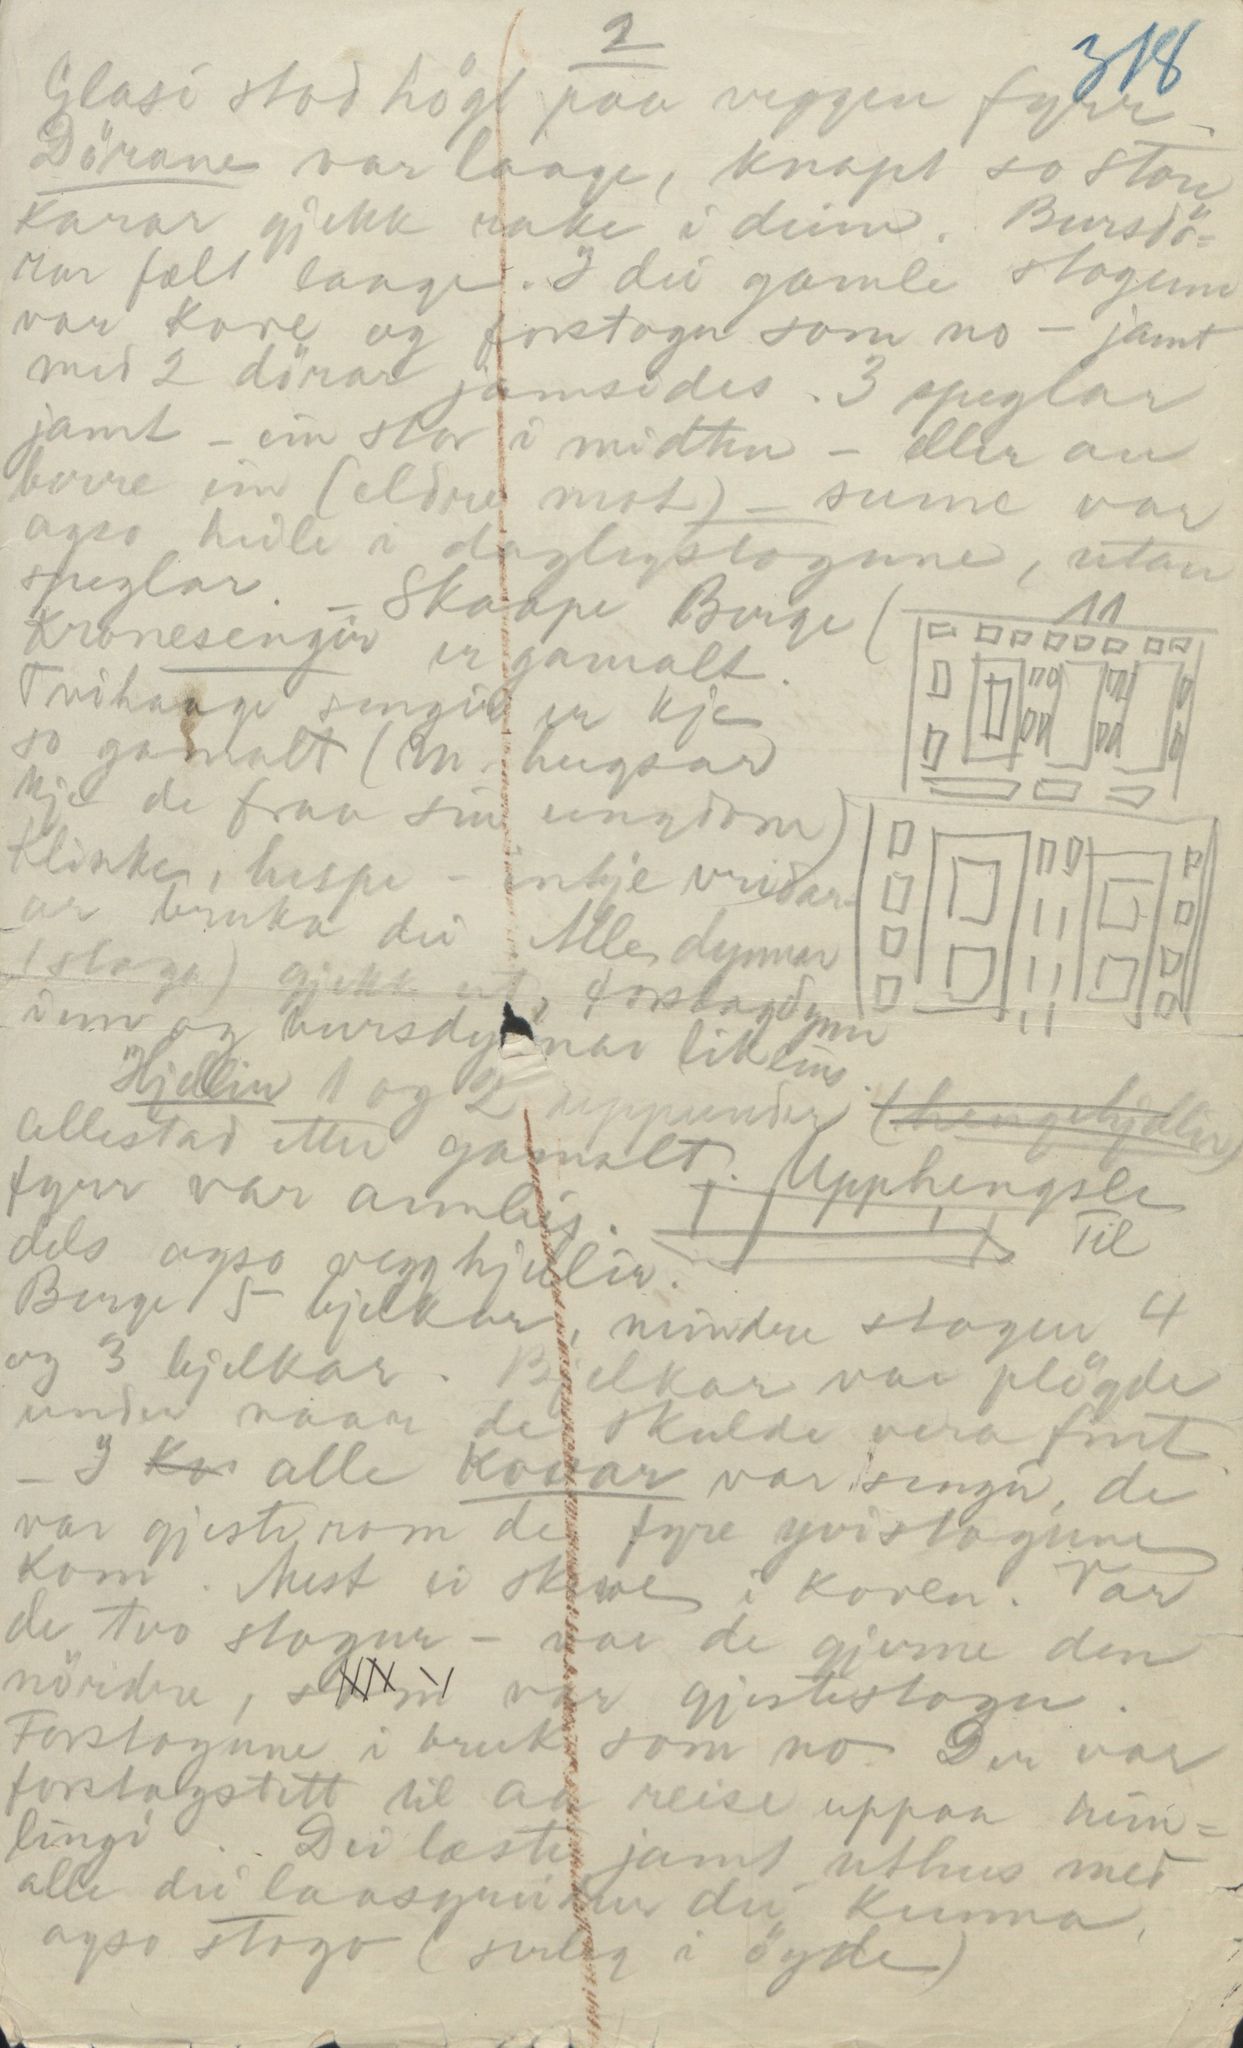 2
318
Glasi stod högt paa veggen fyrr.
Dörane var laage, knapt so store
karar gjekk rake i deim. Bursdö-
rar fælt laage. I dei gamle stogum
var kove og forstogu som no - jamt
med 2 dörar jamsides. 3 speglar
jamt - ein stor i midten - eller au
berre ein (eldre mot) - sume var
ogso heile i daglegstogune, utan
speglar. - Skaape Berge (
Kronesengir er gamalt.
Tvihøage sengir er kje
so gamalt (M. hugsar
kje de fraa sin ungdom)
Klinke, hespe - inkje vridar-
ar bruka dei Alle dynnar
(stoga) gjekk ut, forstogdynn
inn og bursdynnar likeins.
Hjellin 1 og 2 uppunder (hengehjellir)
allestad etter gamalt. Upphengsle
fyrr var annleis. Til
dels ogso vegghjellir.
Berge 5 bjelkar, mindre stogur 4
og 3 bjelkar. Bjelkar var plögde
under naar de skulde vera fint
- I Ko alle Kovar var sengir, de
var gjesterom de fyre yvistogune
kom. Mest ei skive i koven. Var
de tvo stogur - var de gjerne den
nördre, som var gjestestogu.
Forstogune i bruk som no. Der var
forstogstett til aa reise uppaa heim-
lingi. Dei læste jamt uthus med
alle dei laasgreidur dei kunna,
ogso stogo (serleg i öyde)